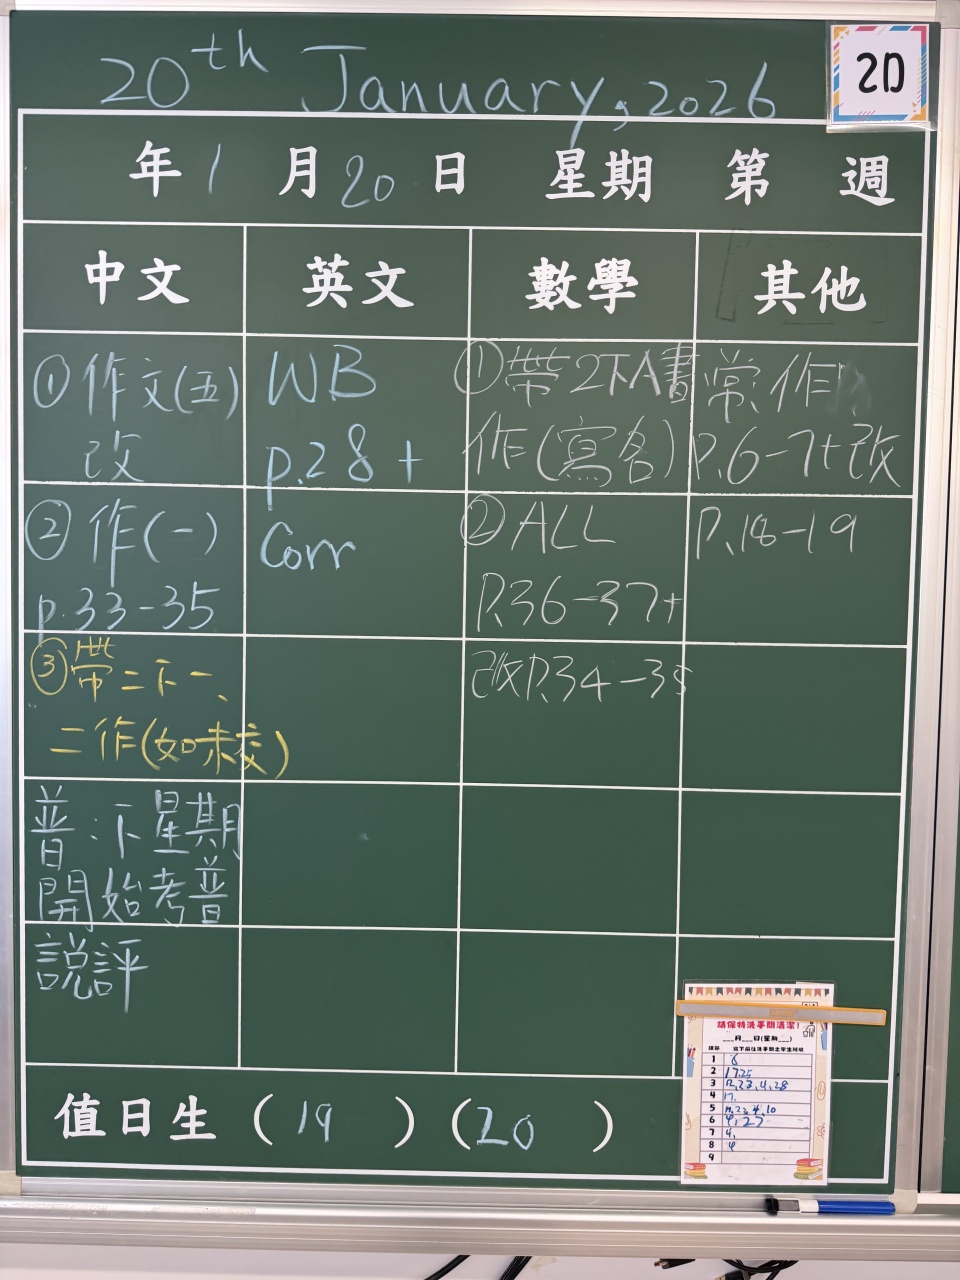 20th January, 2026
2D
年 1 月 20 日 星期 第 週
中文 英文 數學 其他
① 作文(五)
改
② 作(一)
p.33-35
③ 帶二下一、
二作(如未交)
普:下星期
開始考普
說評
WB
p.28+
Corr
① 帶2下A書
作(寫名)
② ALL
P.36-37+
改P.34-35
常作
P.6-7+改
P.18-19
值日生 ( 19 ) ( 20 )
請保持洗手間清潔!
___月___日(星期___)
1 6
2 17.25
3 12,23,4,28
4 17.
5 17,23,4,10
6 9,27
7 4,
8 4
9